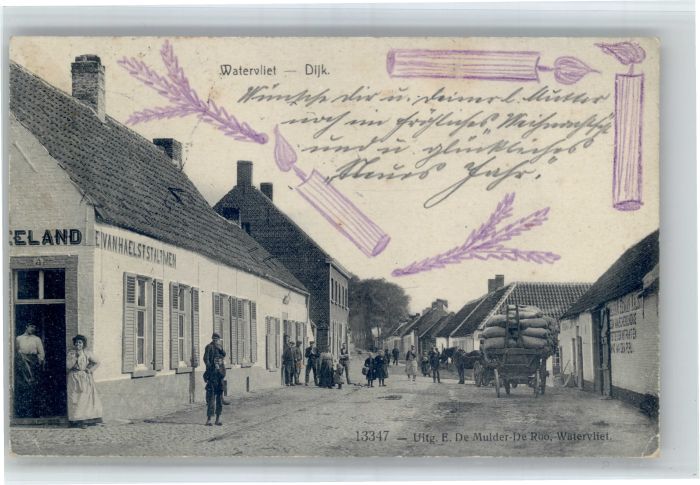 Watervliet — Dijk.
Wünsche dir u. deiner l. Mutter
noch ein fröhliches "Weihnachts"
und u glückliches
"Neues Jahr".
EELAND
E. VANHAELST-STALTIJNEN
13347 — Uitg. E. De Mulder-De Roo, Watervliet.